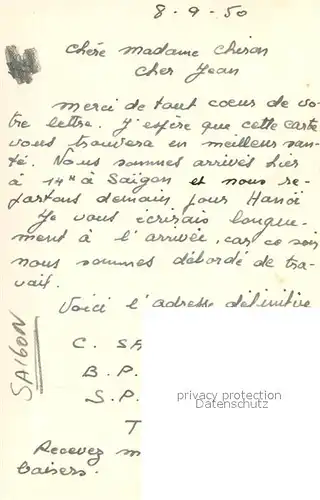 8-9-50
Chère Madame Chiron
Cher Jean
Merci de tout coeur de vo-
tre lettre. J'espère que cette carte
vous trouvera en meilleur san-
té. Nous sommes arrivés hier
à 14H à Saigon et nous re-
partons demain pour Hanoï
Je vous écrirais longue-
ment à l'arrivée, car ce soir
nous sommes débordé de tra-
vail.
Voici l'adresse définitive
C. SA
B.P.
S.P.
T
SAIGON
privacy protection
Datenschutz
Recevez m
baisers.